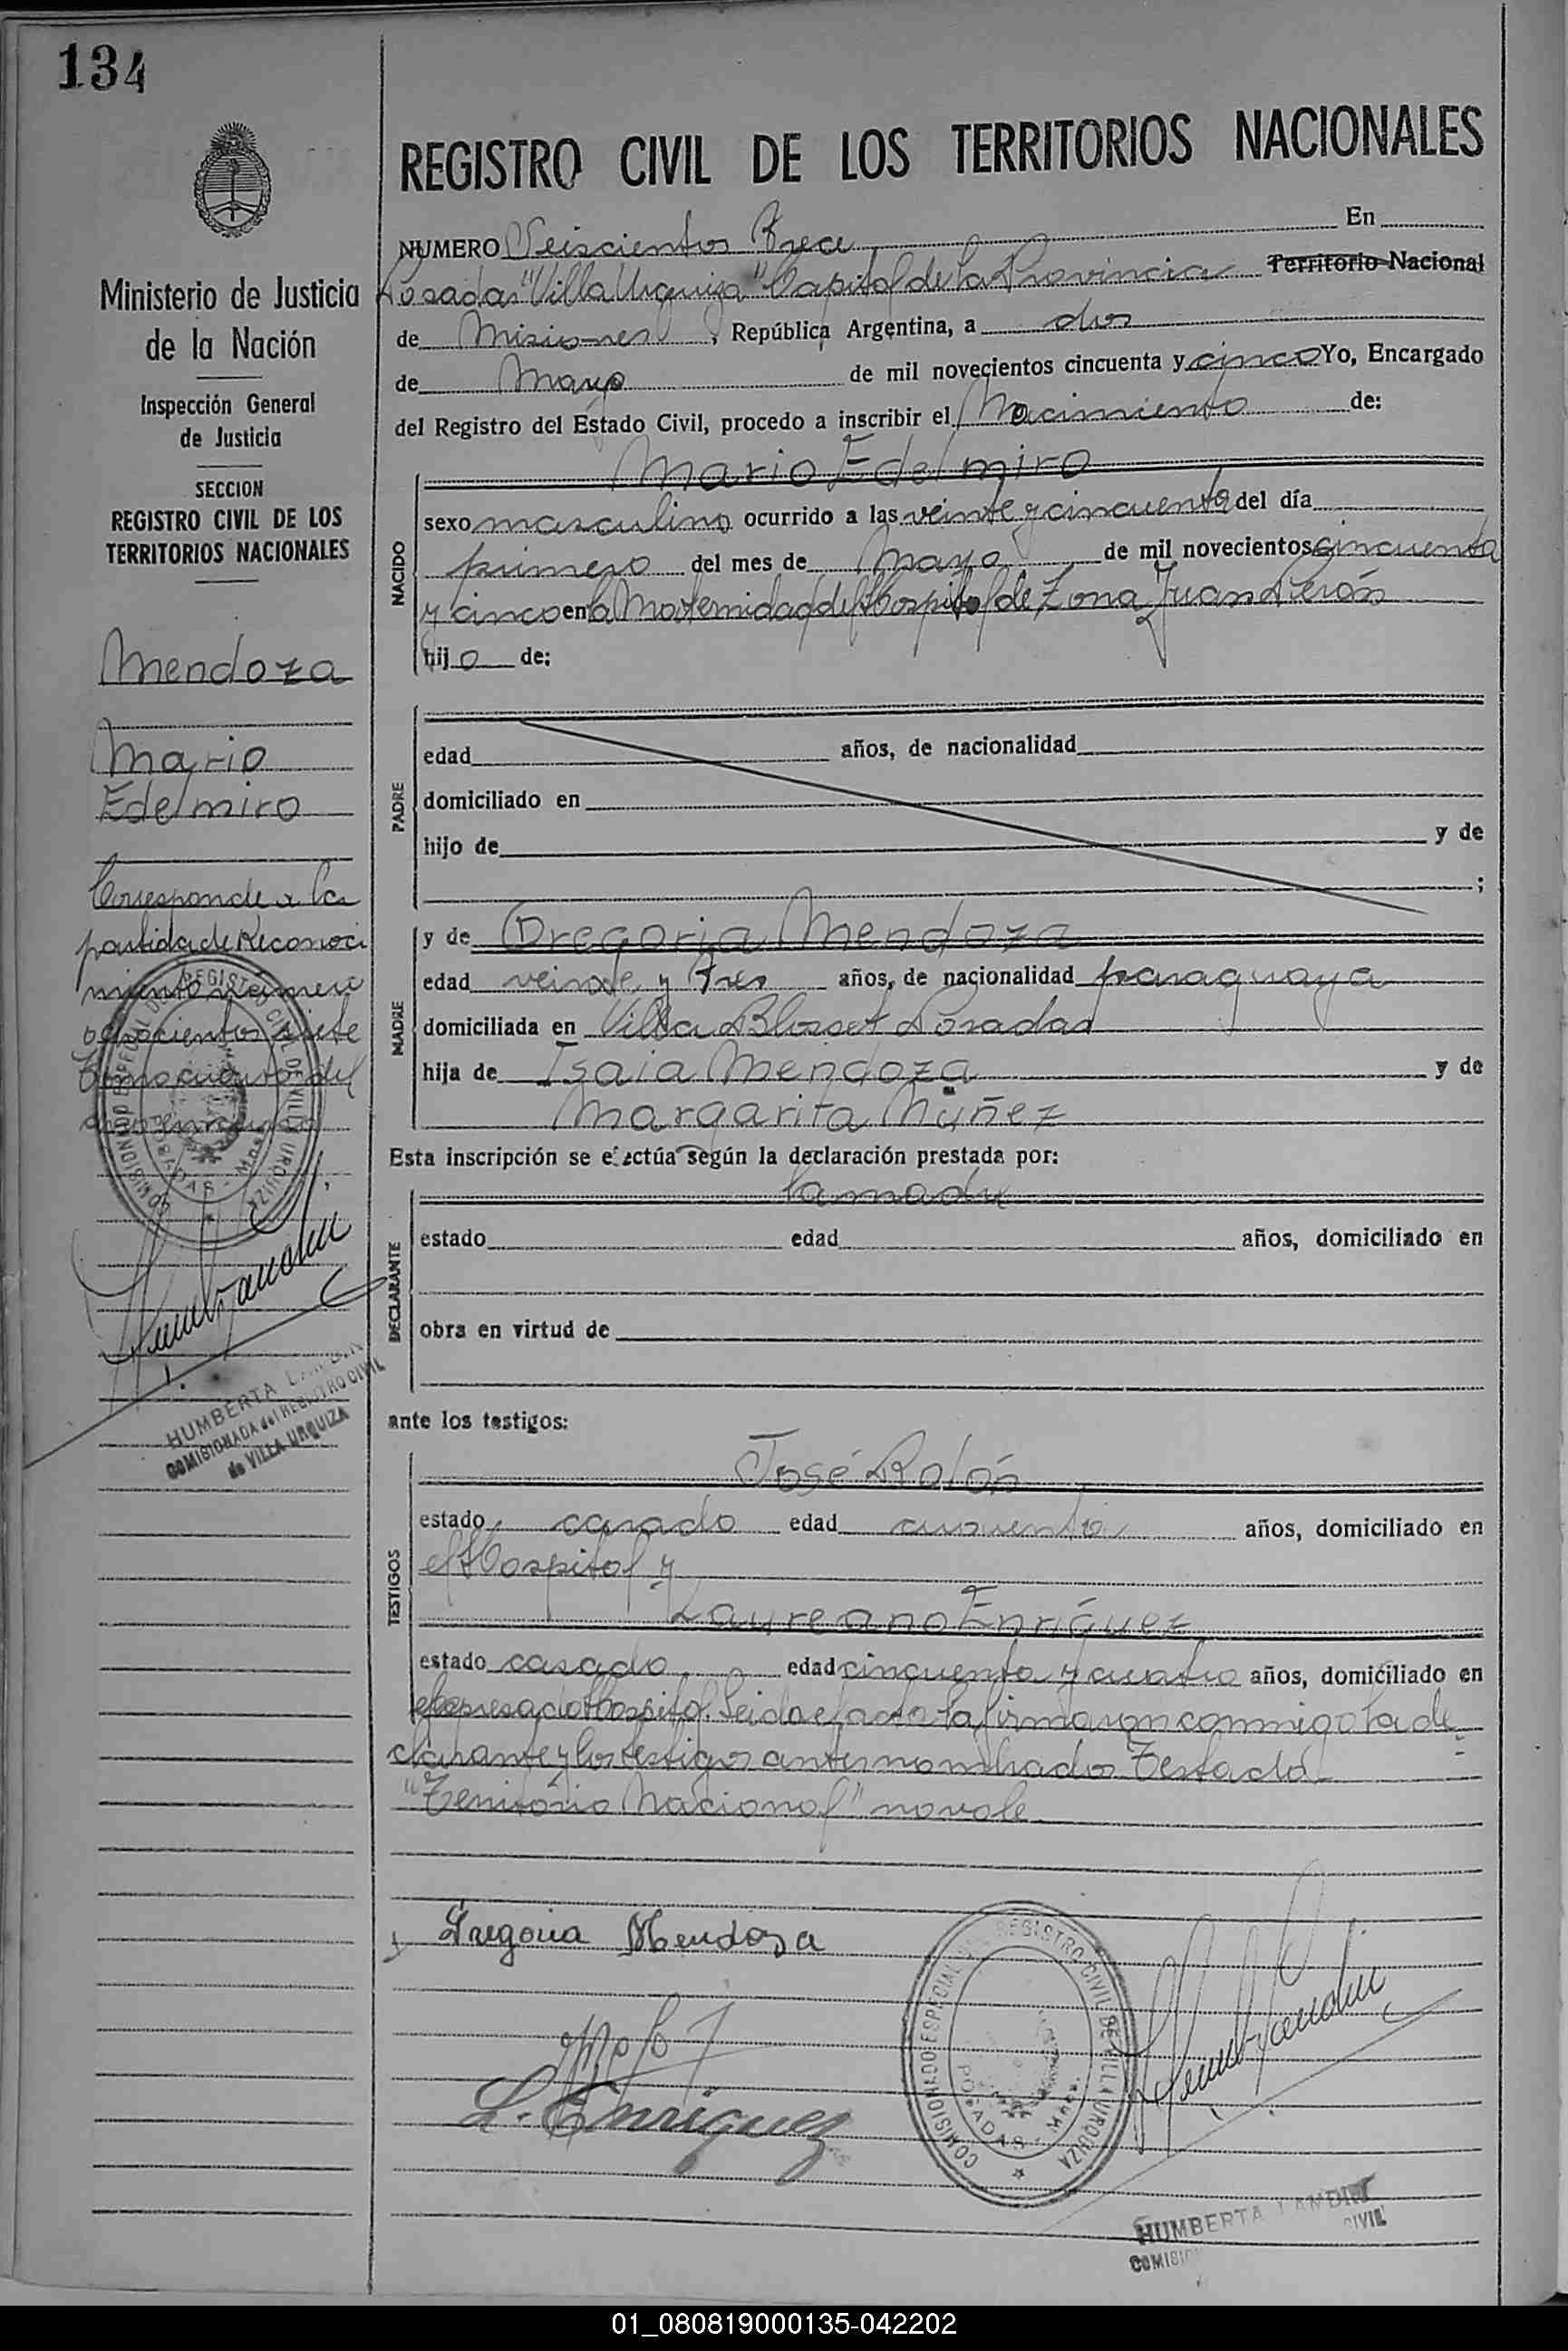 134
REGISTRO CIVIL DE LOS TERRITORIOS NACIONALES
Ministerio de Justicia
de la Nación
Inspección General
de Justicia
SECCION
REGISTRO CIVIL DE LOS
TERRITORIOS NACIONALES
Mendoza
Mario
Edelmiro
Corresponde a la
partida de Reconoci
miento número
ochocientos siete
tomo cuarto del
HUMBERTA
COMISIONADA del REGISTRO CIVIL
de VILLA URQUIZA
NUMERO Seiscientos Trece En
Posadas "Villa Urquiza" Capital de la Provincia Territorio Nacional
de Misiones, República Argentina, a dos
de Mayo de mil novecientos cincuenta y cinco Yo, Encargado
del Registro del Estado Civil, procedo a inscribir el Nacimiento de:
NACIDO
Mario Edelmiro
sexo masculino ocurrido a las veinte y cincuenta del día
primero del mes de mayo de mil novecientos cincuenta
y cinco en la Maternidad del Hospital de Zona Juan Perón
hijo de:
PADRE
edad años, de nacionalidad
domiciliado en
hijo de y de
;
MADRE
y de Gregoria Mendoza
edad veinte y tres años, de nacionalidad paraguaya
domiciliada en Villa Blosset Posadas
hija de Isaia Mendoza y de
Margarita Núñez
Esta inscripción se efectúa según la declaración prestada por:
DECLARANTE
la madre
estado edad años, domiciliado en
obra en virtud de
ante los testigos:
TESTIGOS
José Rolón
estado casado edad cuarenta años, domiciliado en
el Hospital y
Laureano Enríquez
estado casado edad cincuenta y cuatro años, domiciliado en
el expresado Hospital. Leida el acta la firmaron conmigo la de
clarante y los testigos antes nombrados Testado
"Territorio Nacional" no vale
Gregoria Mendoza
L. Enriquez
COMISIONADO ESPECIAL DEL REGISTRO CIVIL DE VILLA URQUIZA
POSADAS - Mnes.
HUMBERTA LANDIN
CIVIL
01_080819000135-042202